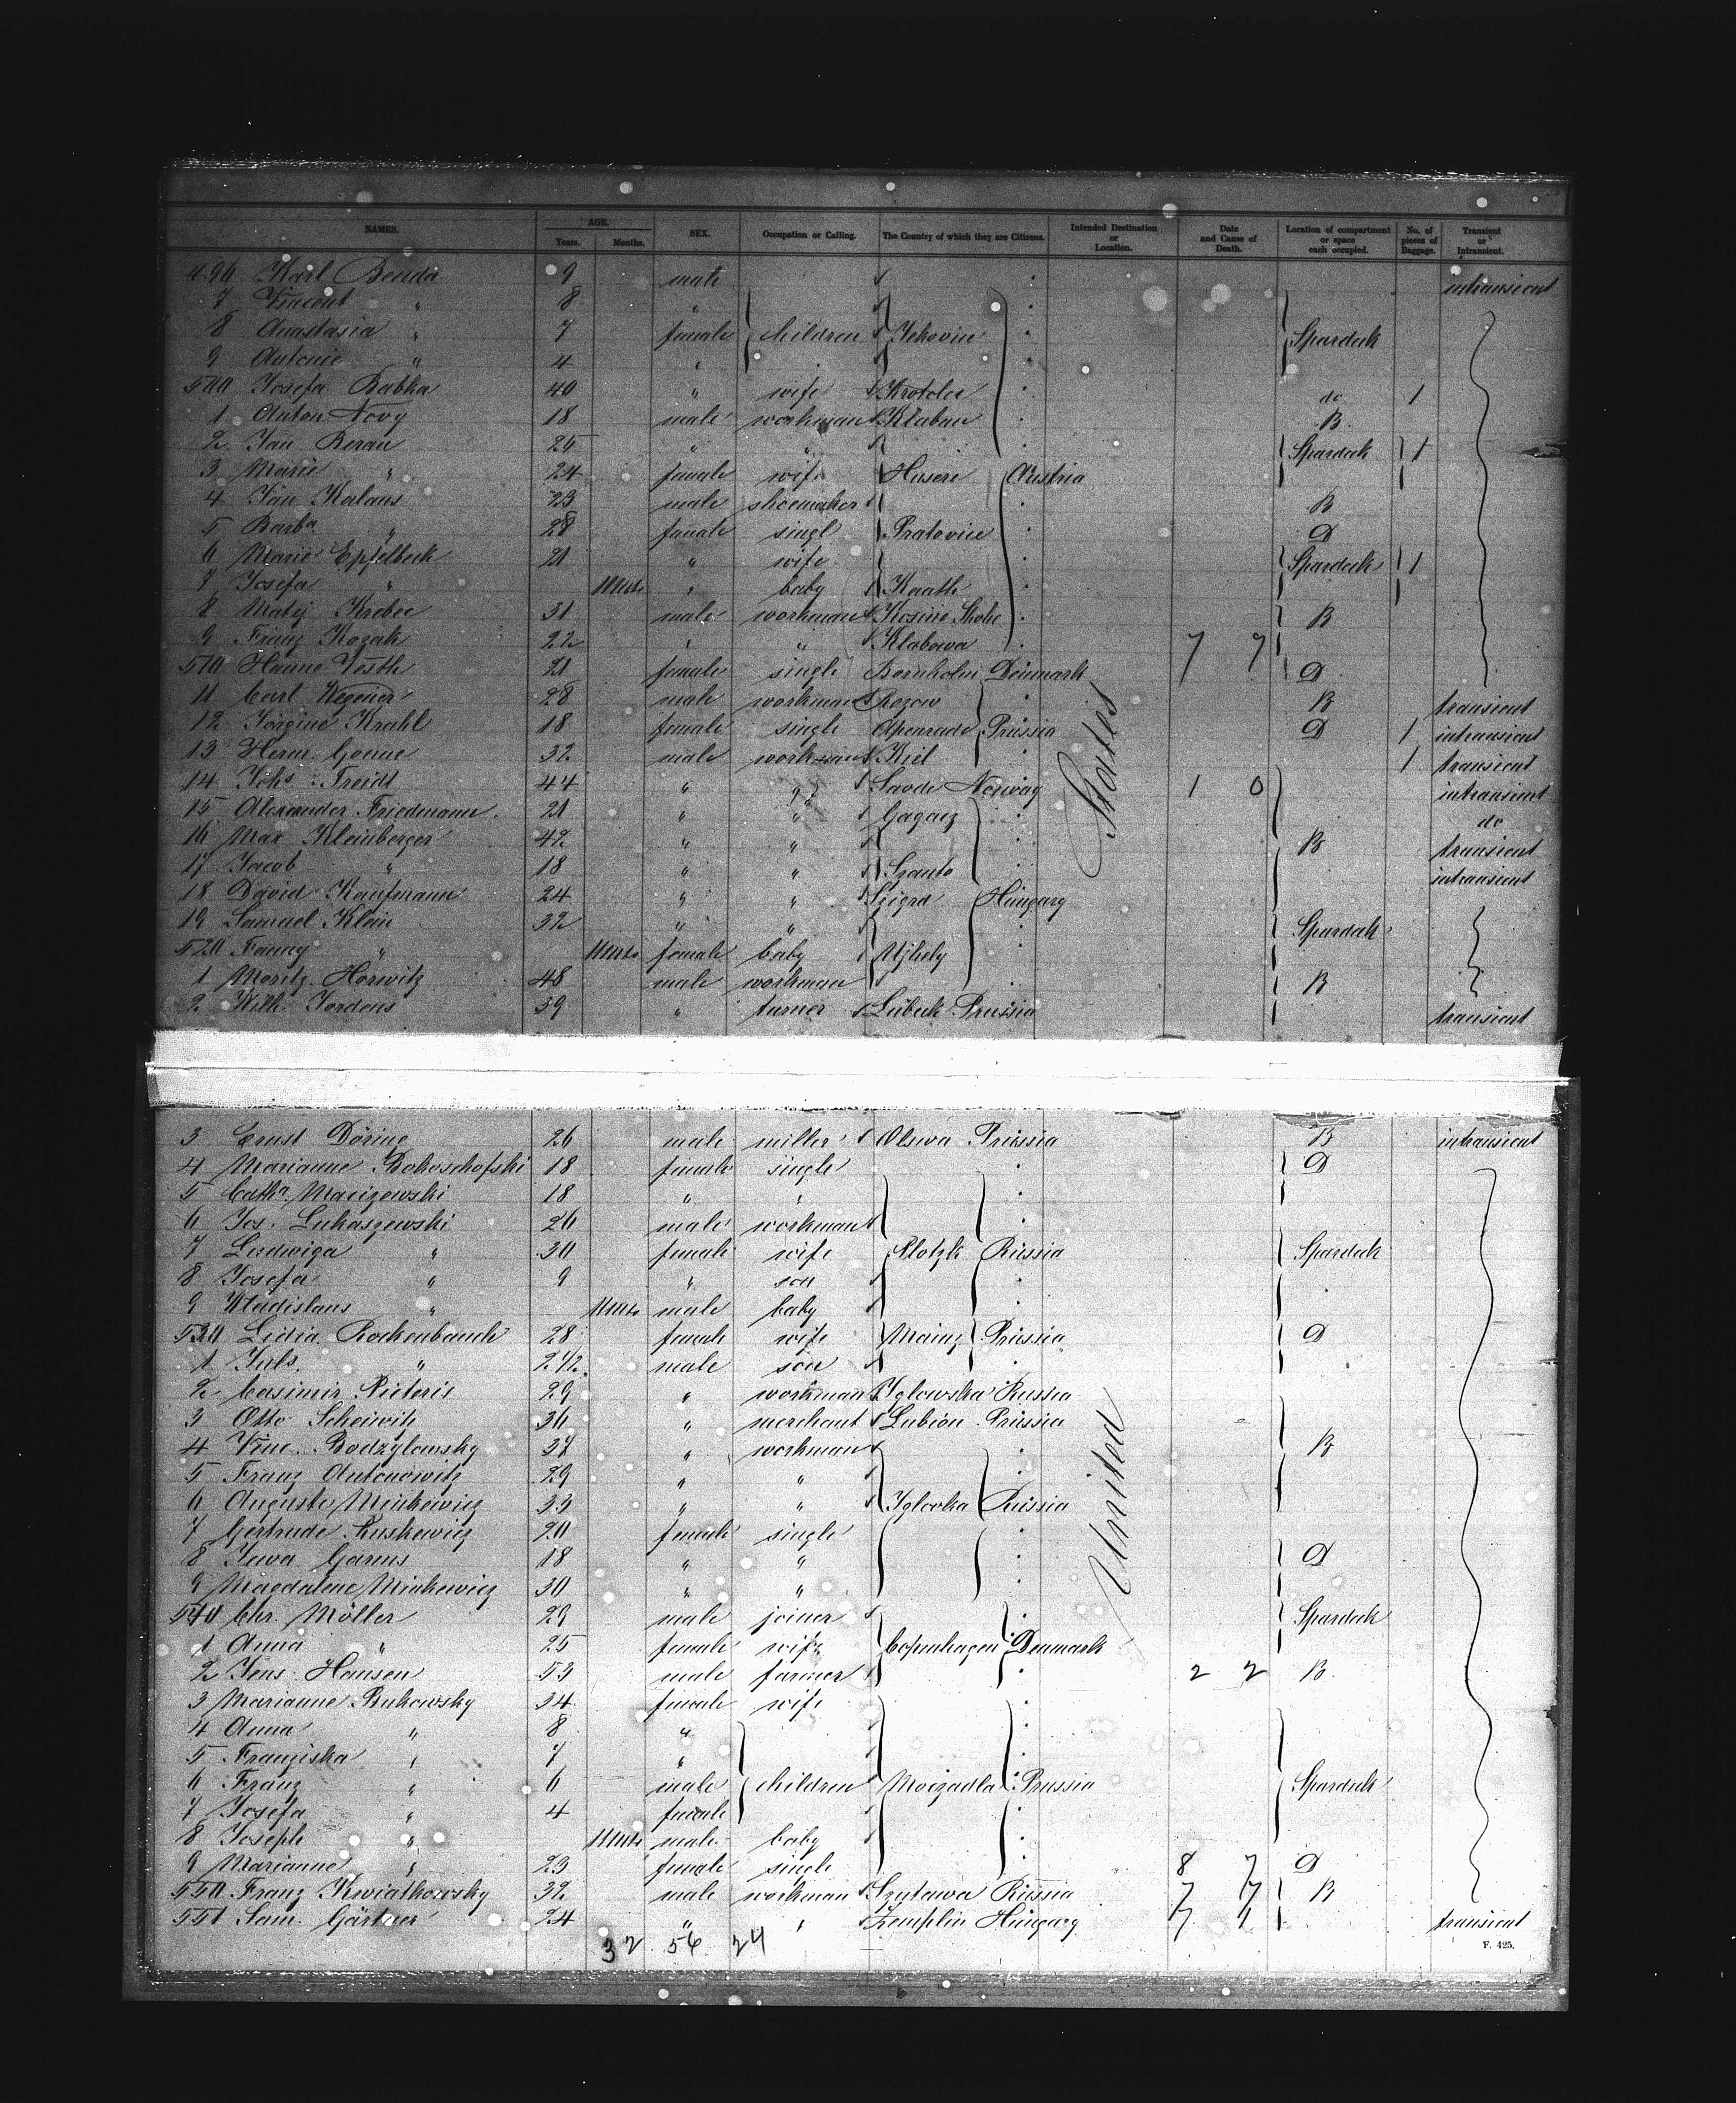 NAMES. AGE. SEX. Occupation or Calling. The Country of which they are Citizens. Intended Destination or Location. Date and Cause of Death. Location of compartment or space each occupied. No. of pieces of Baggage. Transient or Intransient.
Years. Months.
496 Karl Benda 9 male intransient
7 Vincent " 8 "
8 Anastasia " 7 female children Spardeck
9 Antonie " 4 "
500 Josefa Babka 40 " wife do 1
1 Anton Novy 18 male workman Klaban B.
2 Jan Beran 25 " " Spardeck 1
3 Marie " 24 female wife Austria
4 Jan Kalaus 23 male shoemaker B
5 Barba " 28 female singl Pratovice D
6 Marie Epfelbeck 21 " wife Spardeck 1
7 Josefa " 11 Mts " baby Kaath
8 Matej Krebec 31 male workman B
9 Franz Kozak 22 " " Klabowa 7 7
510 Hanne Vesth 21 female single Bornholm Denmark D
11 Carl Wegener 28 male workman Rozow B transient
12 Jorgine Krahl 18 female single Apenrade Prussia D 1 intransient
13 Herm. Gonne 32 male workman Kiel 1 transient
14 Johs Treidt 44 " " Norway 1 0 intransient
15 Alexander Friedmann. 21 " " do
16 Max Kleinberger 42 " " B transient
17 Jacob " 18 " " Szanto intransient
18 David Kaufmann 24 " " Hungary
19 Samuel Klein 32 " " Spardeck
520 Fanny " 11 Mts female baby Ujhely
1 Moritz Horwitz 48 male workman B
2 Wilh. Jordens 39 " turner Lübeck Prussia transient
States
3 Ernst Döring 26 male miller Prussia B intransient
4 Marianne Rokoschofski 18 female single D
5 Catha Macizewski 18 " "
6 Jos. Lukaszewski 26 male workman
7 Ludwiga " 30 female wife Plotzk Russia Spardeck
8 Josefa " 9 " son
9 Wladislaus " 11 Mts male baby
530 Lidia Rockenbauch 28 female wife Mainz Prussia D
1 Juls " 2 1/2 male son
2 Casimir Pieteris 29 " workman Iglowska Russia
3 Otto Scheiwitz 36 " merchant Prussia
4 Vinc. Bodzylowsky 37 " workman B
5 Franz Antonowitz 29 " "
6 Auguste Minkewicz 33 " " Iglovka Russia
7 Gertrude Kuskewicz 20 female single
8 Jewa Garms 18 " " D
9 Magdalene Minkewicz 30 " "
540 Chr. Möller 29 male joiner Spardeck
1 Anna " 25 female wife Copenhagen Denmark
2 Jens Hansen 53 male farmer 2 2 B.
3 Marianne Bukowsky 34 female wife
4 Anna " 8 "
5 Franziska " 7 "
6 Franz " 6 male children Moizadla Prussia Spardeck
7 Josefa " 4 female
8 Joseph " 11 Mts male baby
9 Marianne " 23 female single 8 7 D
550 Franz Kwiatkowsky 32 male workman Szutawa Russia 7 7 B
551 Sam. Gärtner 24 " " Zemplin Hungary 7 1 transient
United
32 56 24
F. 425.